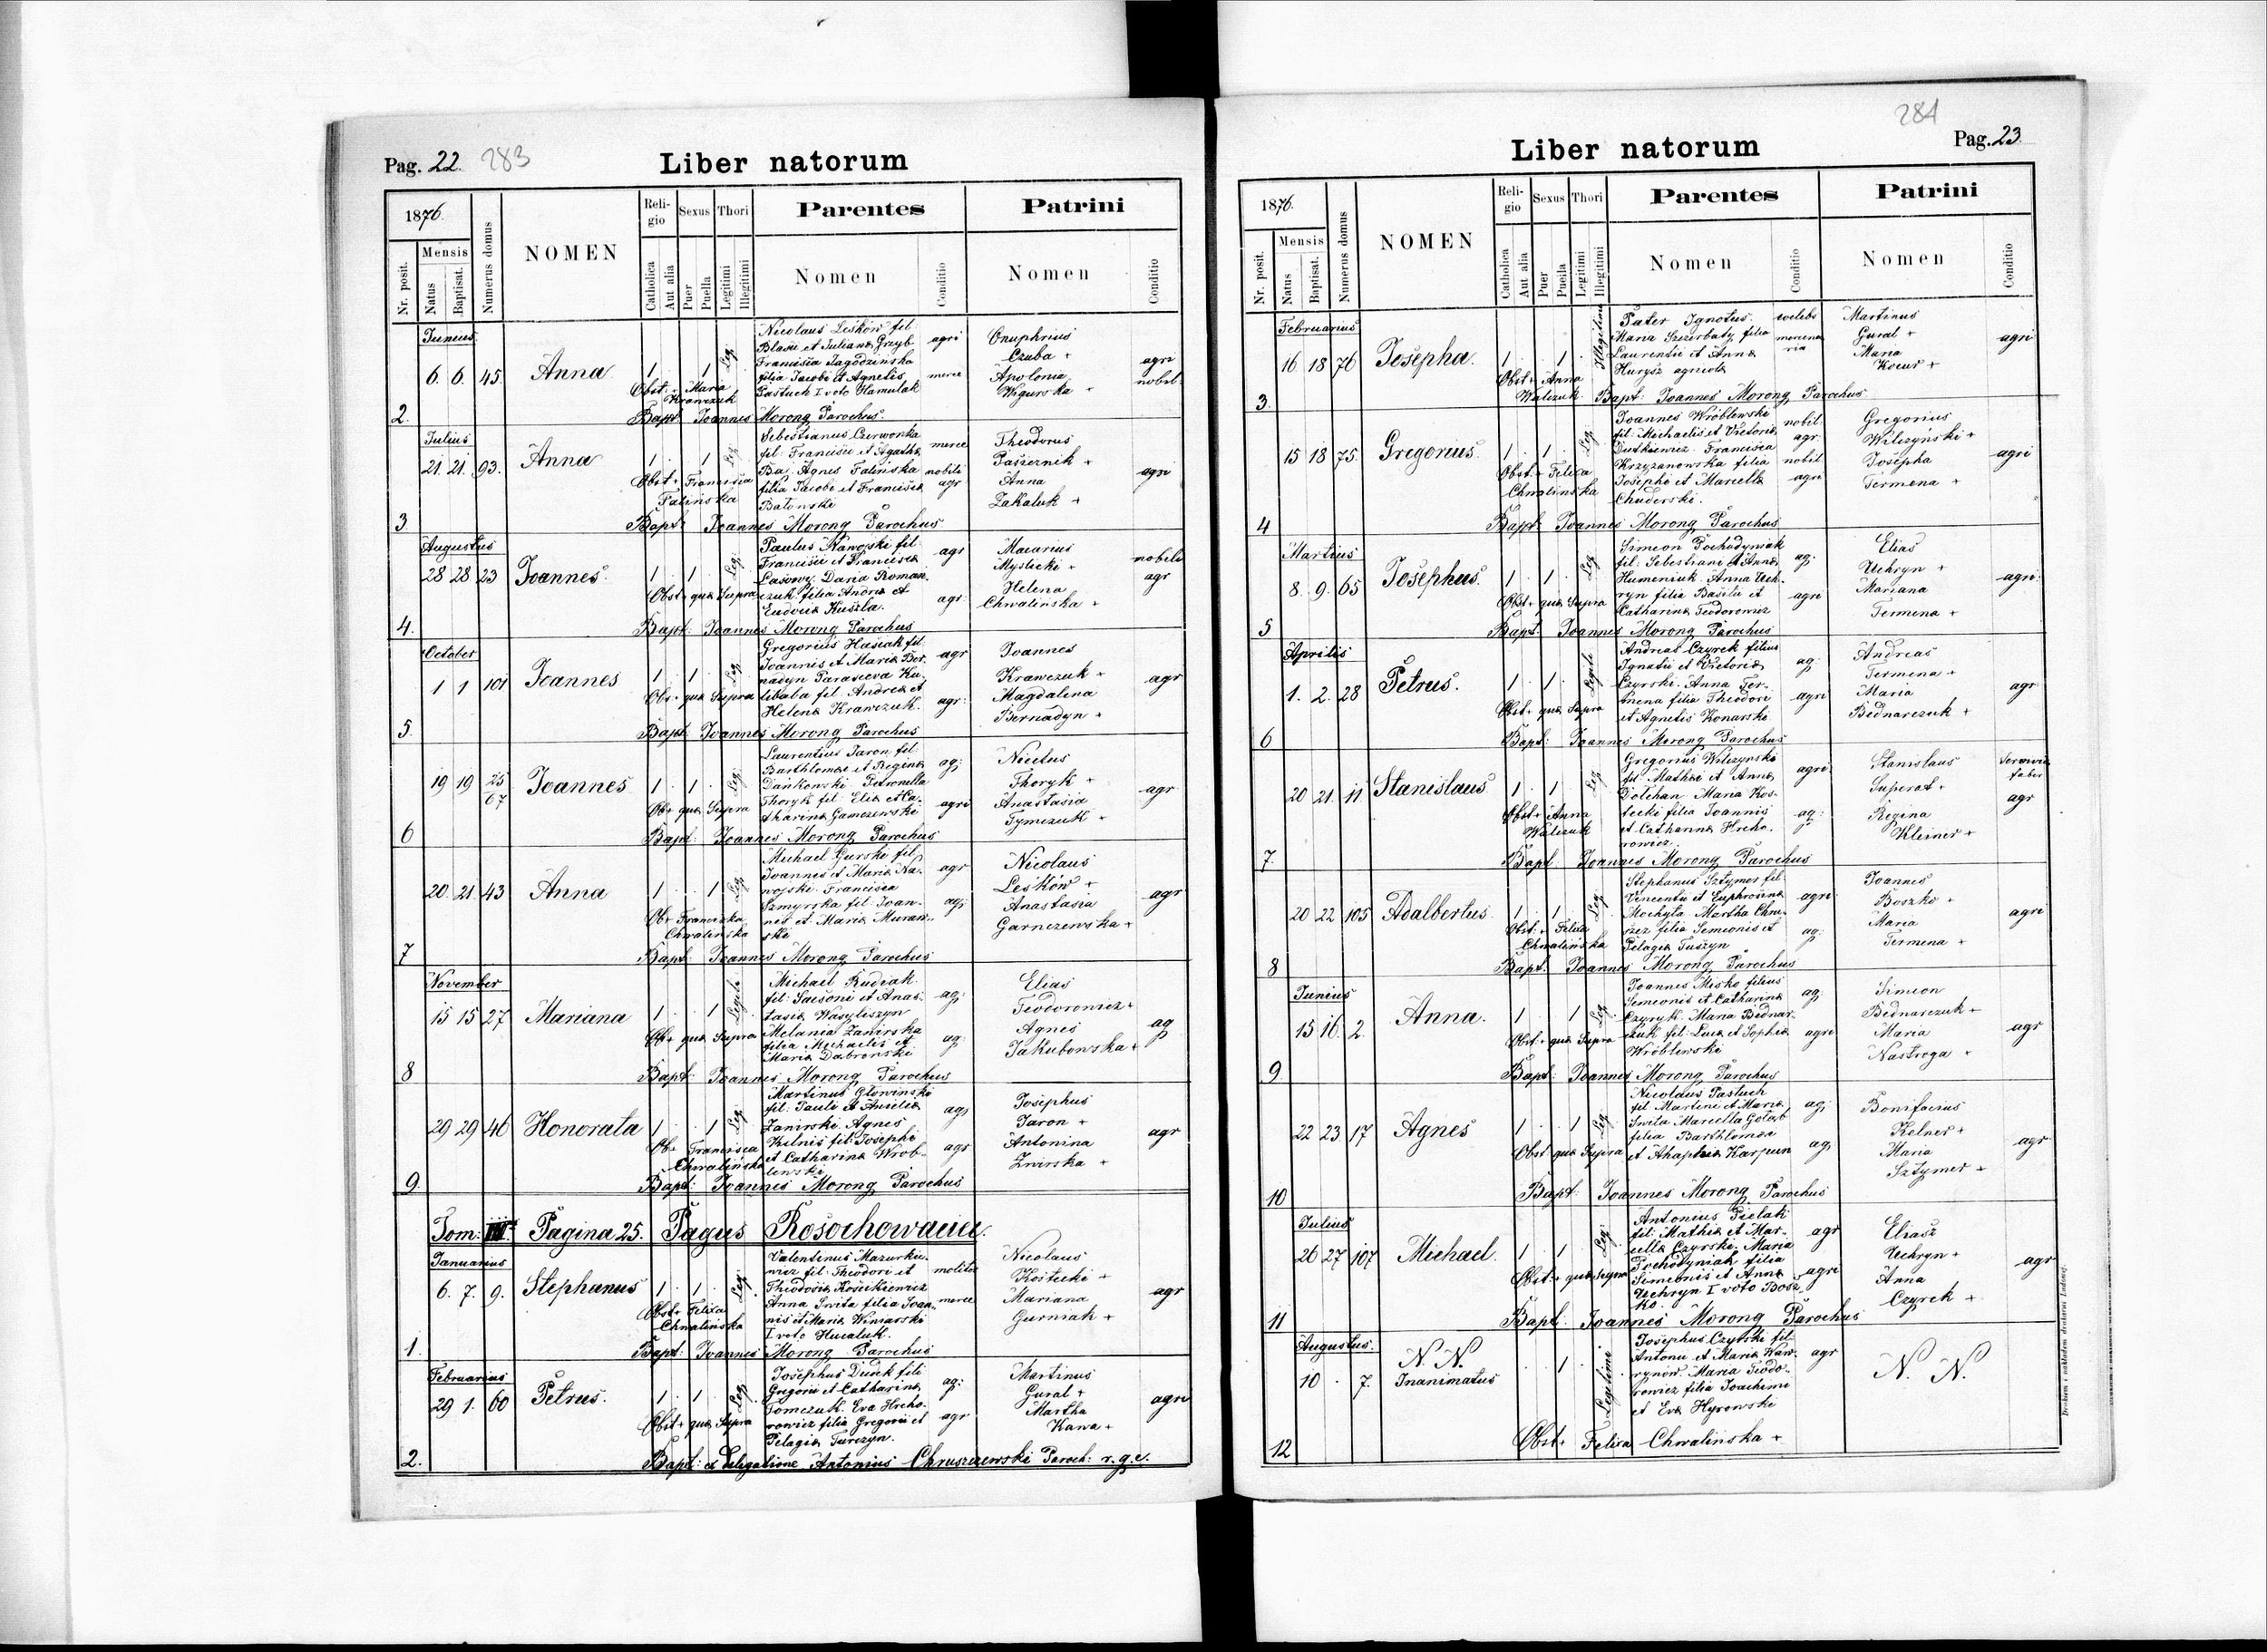 Pag. 22. 283
Liber natorum
1876.
Nr. posit.
Mensis
Natus
Baptisat.
Numerus domus
NOMEN
Religio
Catholica
Aut alia
Sexus
Puer
Puella
Thori
Legitimi
Illegitimi
Parentes
Nomen
Conditio
Patrini
Nomen
Conditio
Junius
2. 6. 6. 45. Anna 1 1 Leg.
Nicolaus Leśków fil.
Blasii et Juliana Grzyb
Francisca Jagodzinska
filia Jacobi et Agnetis
Pastuch I voto Hamulak
agri
merce
Onuphrius
Czuba +
Apolonia
Wgurska +
agri
nobil.
Obst. + Maria
Krawczuk
Bapt. Joannes Morong Parochus
Julius
3 21. 21. 93. Anna 1 1 Leg
Sebestianus Czerwonka
fil. Francisci et Agatha
Ba. Agnes Falinska
filia Jacobi et Francisca
Batonski
merce
nobili
agr
Theodorus
Paszeznik +
Anna
Zakaluk +
agri
Obst + Francisca
Falinska
Bapt. Joannes Morong Parochus
Augustus
4. 28 28 23 Joannes 1 1 Leg.
Paulus Nanojski fil.
Francisci et Francisca
Lasowy. Daria Roman-
czuk filia Andrea et
Eudocia Kuszla.
agr
agr.
Macarius
Myslicki +
Helena
Chwalinska +
nobili
agr
Obst + qua Supra
Bapt: Joannes Morong Parochus
October
5. 1 1 101 Joannes 1 1 Leg
Gregorius Hasiak fil.
Joannis et Maria Ber-
nadyn Parasceva Ku-
libaba fil. Andrea et
Helena Krawczuk.
agr
agr.
Joannes
Krawczuk +
Magdalena
Bernadyn +
agr
Obs. + qua Supra
Bapt. Joannes Morong Parochus
6 19 19 25 67 Joannes 1 1 Leg
Laurentius Jaron fil
Barthlomei et Regina
Dankowski Petronella
Thoryk fil. Elia et Ca-
tharina Garnczewski
ag.
agri
Nicetus
Thoryk +
Anastasia
Tymczuk +
agr
Ob + qua Supra
Bapt. Joannes Morong Parochus
7 20 21 43 Anna 1 1 Leg
Michael Gurski fil.
Joannis et Maria Na-
nojski. Francisca
Szmyrska fil Joan-
nis et Maria Muraw-
ski
agr
ag.
Nicolaus
Leśków +
Anastasia
Garnczewska +
agr
Ob + Franciszka
Chwalińska
Bapt. Joannes Morong Parochus
November
8 15 15 27 Mariana 1 1 Legit.
Michael Rudiak
fil: Sasoni et Anas-
tasia Wasyliszyn
Melania Zanirska
filia Michaelis et
Maria Dabronski
ag.
ag.
Elias
Teodorowicz +
Agnes
Jakubowska +
ag
Ob + qua Supra
Bapt. Joannes Morong Parochus
9. 29 29 46 Honorata 1 1 Leg.
Martinus Glowinski
fil: Pauli et Anielia
Zanirski Agnes
Kilnis fil: Josephi
et Catharina Wrob-
lewski
ag.
agr
Josephus
Jaron +
Antonina
Zwirska +
agr
Ob + Francisca
Chwalińska
Bapt: Joannes Morong Parochus
Tom: III. Pagina 25. Pagus Rosochowaciec.
Januarius
1. 6. 7. 9. Stephanus 1 1 Leg.
Valentinus Mazurkie-
wicz fil: Theodori et
Theodosia Kosikiewicz
Anna Swita filia Joan-
nis et Maria Winiarski
I voto Hucaluk.
molitor
merce
Nicolaus
Kostecki +
Mariana
Gurniak +
agr
Obst + Felixa
Chwalinska
Bapt: Joannes Morong Parochus
Februarius
2. 29 1. 60 Petrus. 1 1 Leg.
Josephus Dudek fili
Gregorii et Catharina
Tomczuk. Eva Hreho-
rowicz filia Gregorii et
Pelagia Turczyn.
ag.
agr
Martinus
Gural +
Martha
Kawa +
agri
Obst + qua Supra
Bapt: ex delegatione Antonius Chruszczewski Paroch: r. g. c.
284
Pag. 23.
Liber natorum
1876.
Nr. posit.
Mensis
Natus
Baptisat.
Numerus domus
NOMEN
Religio
Catholica
Aut alia
Sexus
Puer
Puella
Thori
Legitimi
Illegitimi
Parentes
Nomen
Conditio
Patrini
Nomen
Conditio
Februarius
3. 16 18 76 Josepha. 1 1 Illegitima
Pater Ignotus.
Maria Szczerbaty filia
Laurentii et Anna
Hurysz agricola
coelebs
mercena
ria
Martinus
Gural +
Maria
Kocur +
agri
Obst + Anna
Walczuk
Bapt: Joannes Morong Parochus
4 15 18 75. Gregorius 1 1 Leg
Joannes Wróblewski
fil: Michaelis et Victoria
Dutkiewicz. Francisca
Krzyzanowska filia
Josephi et Marcella
Chuderski.
nobil.
agr.
nobil
agri
Gregorius
Wilczyński +
Josepha
Termena +
agri
Obst. + Felixa
Chwalinska
Bapt. Joannes Morong Parochus
Martius
5 8. 9. 65 Josephus. 1 1 Leg
Simeon Pochodyniak
fil: Sebestiani et Anna
Humeniuk. Anna Uch-
ryn filia Basilii et
Catharina Teodorowicz
ag.
agri
Elias
Uchryn +
Mariana
Termena +
agri
Obst + qua Supra
Bapt. Joannes Morong Parochus
Aprilis
6 1. 2. 28 Petrus. 1 1 Legit.
Andreas Czyrek filius
Ignatii et Victoria
Czyrski. Anna Ter-
mena filia Theodori
et Agnetis Konarski
ag:
agri
Andreas
Termena +
Maria
Bednarczuk +
agr
Obst + qua Supra
Bapt: Joannes Morong Parochus
7. 20 21. 11 Stanislaus 1 1 Leg
Gregorius Wilczynski
fil: Mathai et Anna
Dolchan. Maria Kos-
tecki filia Joannis
et Catharina Hreho-
rowicz.
agri
ag:
Stanislaus
Superat +
Regina
Kleiner +
faber
agr
Obst + Anna
Walczuk
Bapt. Joannes Morong Parochus
8 20 22 105 Adalbertus 1 1 Leg
Stephanus Sztymer fil:
Vincentii et Euphrosina
Mochyla Martha Chru-
szcz filia Semionis et
Pelagia Tuszyn
agri
ag:
Joannes
Boszko +
Maria
Termena +
agri
Obst. + Felixa
Chwalińska
Bapt. Joannes Morong Parochus
Junius
9. 15 16 2. Anna. 1 1 Leg
Joannes Misko filius
Semionis et Catharina
Czyryk. Maria Bednar-
czuk fil: Luca et Sophia
Wróblewski
ag:
agri
Simeon
Bednarczuk +
Maria
Nastroga +
agr
Obst. + qua Supra
Bapt: Joannes Morong Parochus
10 22 23 17 Agnes 1 1 Leg
Nicolaus Pastuch
fil Martini et Maria
Swita Marcella Gołąb
filia Barthlomei
et Ahaphia Karpun
ag:
ag:
Bonifacius
Kelner +
Maria
Sztymer +
agr
Obst qua Supra
Bapt: Joannes Morong Parochus
Julius
11 26 27 107 Michael. 1 1 Leg
Antonius Pielak
fil: Mathia et Mar-
cella Czyrski. Maria
Pochodyniak filia
Simeonis et Anna
Uchryn I voto Bosz-
ko.
agr
agri
Eliasz
Uchryn +
Anna
Czyrek +
agr
Obst + qua Supra
Bapt. Joannes Morong Parochus
Augustus.
12 10 . 7. N. N.
Inanimatus 1 Legitimi
Josephus Czyrski fil.
Antonii et Maria Waw-
rynów. Maria Teodo-
rowicz filia Joachimi
et Eva Hyrowski
agr
N. N.
Obst. Felixa Chwalinska +